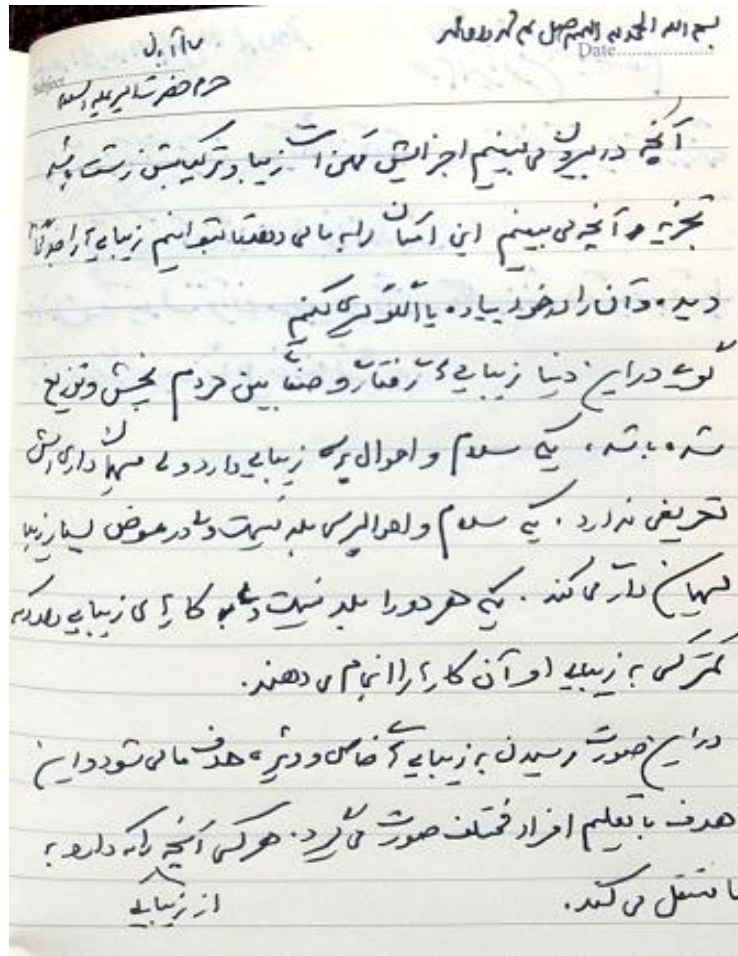 بسم الله الحمد لله اللهم صل علی محمد و آل محمد
Date
Subject
حرم حضرت امیر علیه السلام
آنچه در بیرون می بینیم اجزائش ممکن است زیبا و ترکیبش زشت باشد
تجزیه آنچه می بینیم این امکان را به ما می دهد تا بتوانیم زیبایی ها را جداگانه
دیده و آن را در خود پیاده یا الگو گیری کنیم
گویی در این دنیا زیبایی های رفتار و صفات بین مردم پخش و توزیع
شده باشد، یکی سلام و احوال پرسی زیبایی دارد ولی مهمان داری اش
تعریفی ندارد. یکی سلام و احوالپرسی بلد نیست ولی در عوض بسیار زیبا
مهمان داری می کند. یکی هر دو را بلد نیست ولی کارهای زیبایی دارد که
کمتر کسی به زیبایی او آن کارها را انجام می دهند.
در این صورت رسیدن به زیبایی های خاص و ویژه هدف ما می شود و این
هدف با تعلیم افراد مختلف صورت می گیرد. هر کسی آنچه را که دارد به
ما منتقل می کند.
از زیبایی